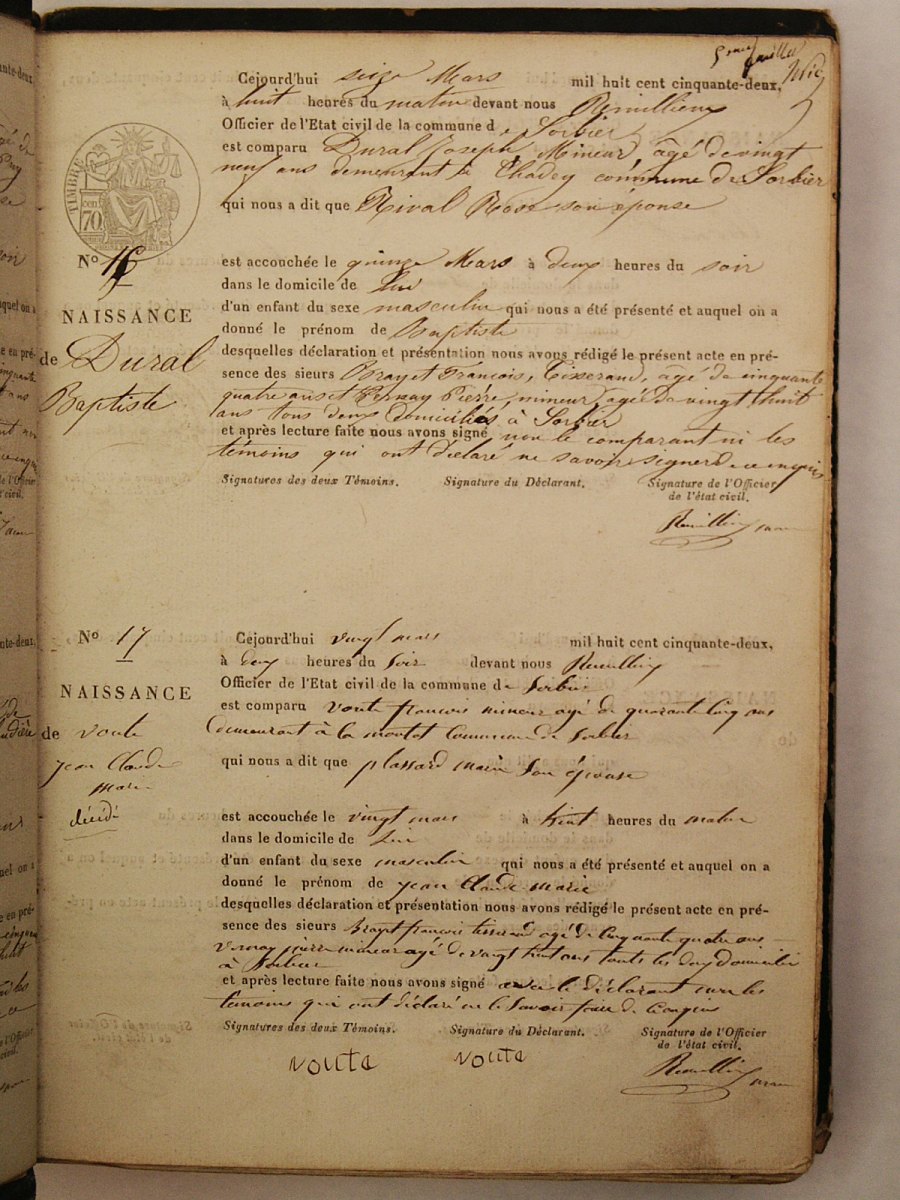 Cejourd'hui seize Mars mil huit cent cinquante-deux,
à huit heures du matin devant nous Remillieux
Officier de l'Etat civil de la commune de Sorbier
est comparu Dural Joseph, Mineur, âgé de vingt
neuf ans demeurant à commune de Sorbier
qui nous a dit que Rival Rose son eponse
TIMBRE
70
No 16
est accouchée le quinze Mars à deux heures du soir
dans le domicile de lui
NAISSANCE
d'un enfant du sexe masculin qui nous a été présenté et auquel on a
donné le prénom de Baptiste
de Dural
Baptiste
desquelles déclaration et présentation nous avons rédigé le présent acte en pré-
sence des sieurs Brayet François, Tisserand, âgé de cinquante
quatre ans et Pierre, mineur, agé de vingt huit
ans tous deux domiciliés à Sorbier
et après lecture faite nous avons signé non le comparant ni les
témoins qui ont déclaré ne savoir signer de ce enquis
Signatures des deux Témoins. Signature du Déclarant. Signature de l'Officier
de l'état civil.
No 17
Cejourd'hui vingt mars mil huit cent cinquante-deux,
à deux heures du soir devant nous
NAISSANCE
Officier de l'Etat civil de la commune de Sorbier
est comparu voute françois mineur agé de quarante cinq ans
de voute
jean Claude
marie
décédé
demeurant à la montat Commune de Sorbier
qui nous a dit que plassard marie Son épouse
est accouchée le vingt mars à huit heures du matin
dans le domicile de lui
d'un enfant du sexe masculin qui nous a été présenté et auquel on a
donné le prénom de jean Claude marie
desquelles déclaration et présentation nous avons rédigé le présent acte en pré-
sence des sieurs Brayet françois tisserand agé de Cinquante quatre ans
pierre mineur agé de vingt huit ans touts les deux domicilié
à Sorbier
et après lecture faite nous avons signé avec le Déclarant les
témoins qui ont déclaré ne le Savoir faire de
Signatures des deux Témoins. Signature du Déclarant. Signature de l'Officier
de l'état civil.
voute voute